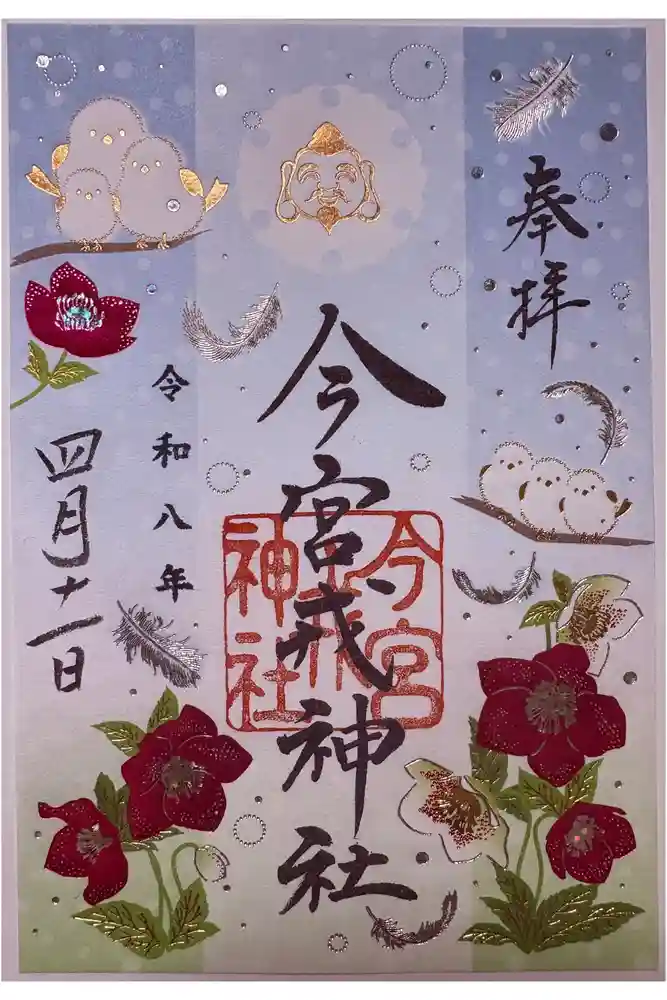 奉拝
今宮戎神社
今宮
戎
神社
令和八年
四月十一日